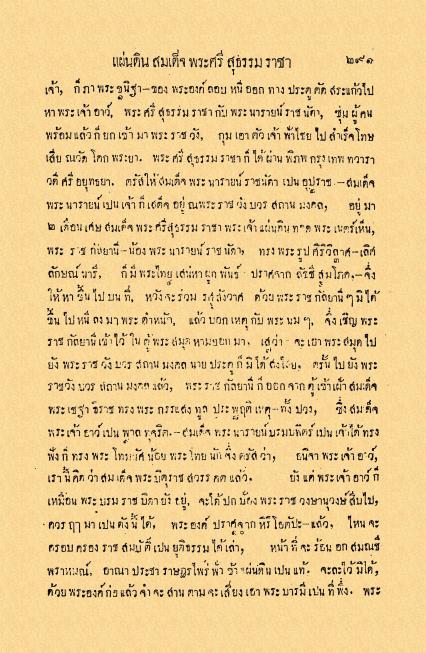 แผ่นดิน สมเด็จ พระศรี สุธรรม ราชา ๒๙๑
เจ้า, ก็ ภา พระ ขนิฐา–ของ พระองค์ ลอบ หนี ออก ทาง ประตู ตัด สระแก้วไป
หา พระ เจ้า อาว์, พระ ศรี สุธรรม ราชา กับ พระ นารายน์ ราช นัดา, ซุ่ม ผู้ คน
พร้อม แล้ว ก็ ยก เข้า มา พระ ราช วัง, กุม เอา ตัว เจ้า ฟ้าไชย ไป สำเร็จ โทษ
เสีย ณวัด โคก พระยา. พระ ศรี สุธรรม ราชา ก็ ได้ ผ่าน พิภพ กรุง เทพ ทวารา
วดี ศรี อยุทธยา. ตรัสให้ สมเด็จ พระ นารายน์ ราชนัดา เปน อุปราช –สมเด็จ
พระ นารายน์ เปน เจ้า ก็ เสด็จ อยู่ ณพระ ราช วัง บวร สถาน มงคล, อยู่ มา
๒ เดือน เศษ สมเด็จ พระ ศรีสุธรรม ราชา พระ เจ้า แผ่นดิน ทอด พระ เนตร์เห็น,
พระ ราช กัลยานี–น้อง พระ นารายน์ ราช นัดา, ทรง พระ รูป ศิริวิลาศ–เลิศ
ลักษณ์ นารี, ก็ มี พระไทย เสน่หา ผูก พันธ์ ปราศจาก ลัชชี สมโภค,–จึ่ง
ให้ หา ขึ้น ไป บน ที่, หวังจะ ร่วม รสสังวาศ ด้วย พระ ราช กัลยานี ๆ มิ ได้
ขึ้น ไป หนี ลง มา พระ ตำหนัก, แล้ว บอก เหตุ กับ พระ นม ๆ, จึ่ง เชิญ พระ
ราช กัลยานี เข้า ไว้ ใน ตู้ พระ สมุด หามออก มา, จะ เอา พระ สมุด ไป
ยัง พระ ราช วัง บวร สถาน มงคล นาย ประตู ก็ มิ ได้ สงไสย, ครั้น ไป ยัง พระ
ราชวัง บวร สถาน มงคล แล้ว, พระ ราช กัลยานี ก็ ออก จาก ตู้ เข้า เฝ้า สมเด็จ
พระ เชฐา ธิราช ทรง พระ กรรแสง ทูล ประพฤติ เหตุ–ทั้ง ปวง, ซึ่ง สมเด็จ
พระ เจ้า อาว์ เปน พาล ทุจริต.–สมเด็จ พระ นารายน์ บรมบพิตร์ เปน เจ้า ได้ ทรง
ฟัง ก็ ทรง พระ โทมนัศ น้อย พระ ไทย นัก จึ่ง ตรัส ว่า, อนิจา พระ เจ้า อาว์,
เรา นี้ คิด ว่า สม เด็จ พระ บิตุราช สวรร คต แล้ว. ยัง แต่ พระ เจ้า อาว์ ก็
เหมือน พระ บรม ราช บิดา ยัง อยู่, จะได้ ปก ป้อง พระ ราช วงษานุวงษ์ สืบไป,
ควร ฤๅ มา เปน ดัง นี้ ได้, พระ องค์ ปราศจาก หิริ โอตัปะ–แล้ว, ไหน จะ
ครอบ ครอง ราช สมบัติ เปน ยุติธรรม ได้ เล่า, หน้า ที่ จะ ร้อน อก สมณชี
พราหมณ์, อาณา ประชา ราษฎร ไพร่ ฟ้า ข้า แผ่นดิน เปน แท้. จะละไว้ มิได้,
ด้วย พระองค์ ก่อ แล้ว จำ จะ สาน ตาม จะ เสี่ยง เอา พระ บารมี เปน ที่ พึ่ง. พระ